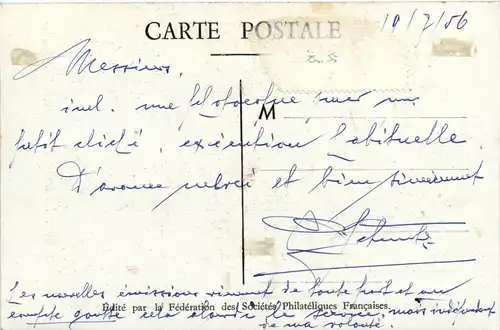 CARTE POSTALE
19/7/56
Messieurs,
incl. une photocopie pour un
M
petit cliché, exécution habituelle.
D'avance merci et bien sincèrement
Les nouvelles émissions viennent de toute part et au
Édité par la Fédération des Sociétés Philatéliques Françaises.
compte goutte cela alourdi le service, mais indépendant
de ma volonté.